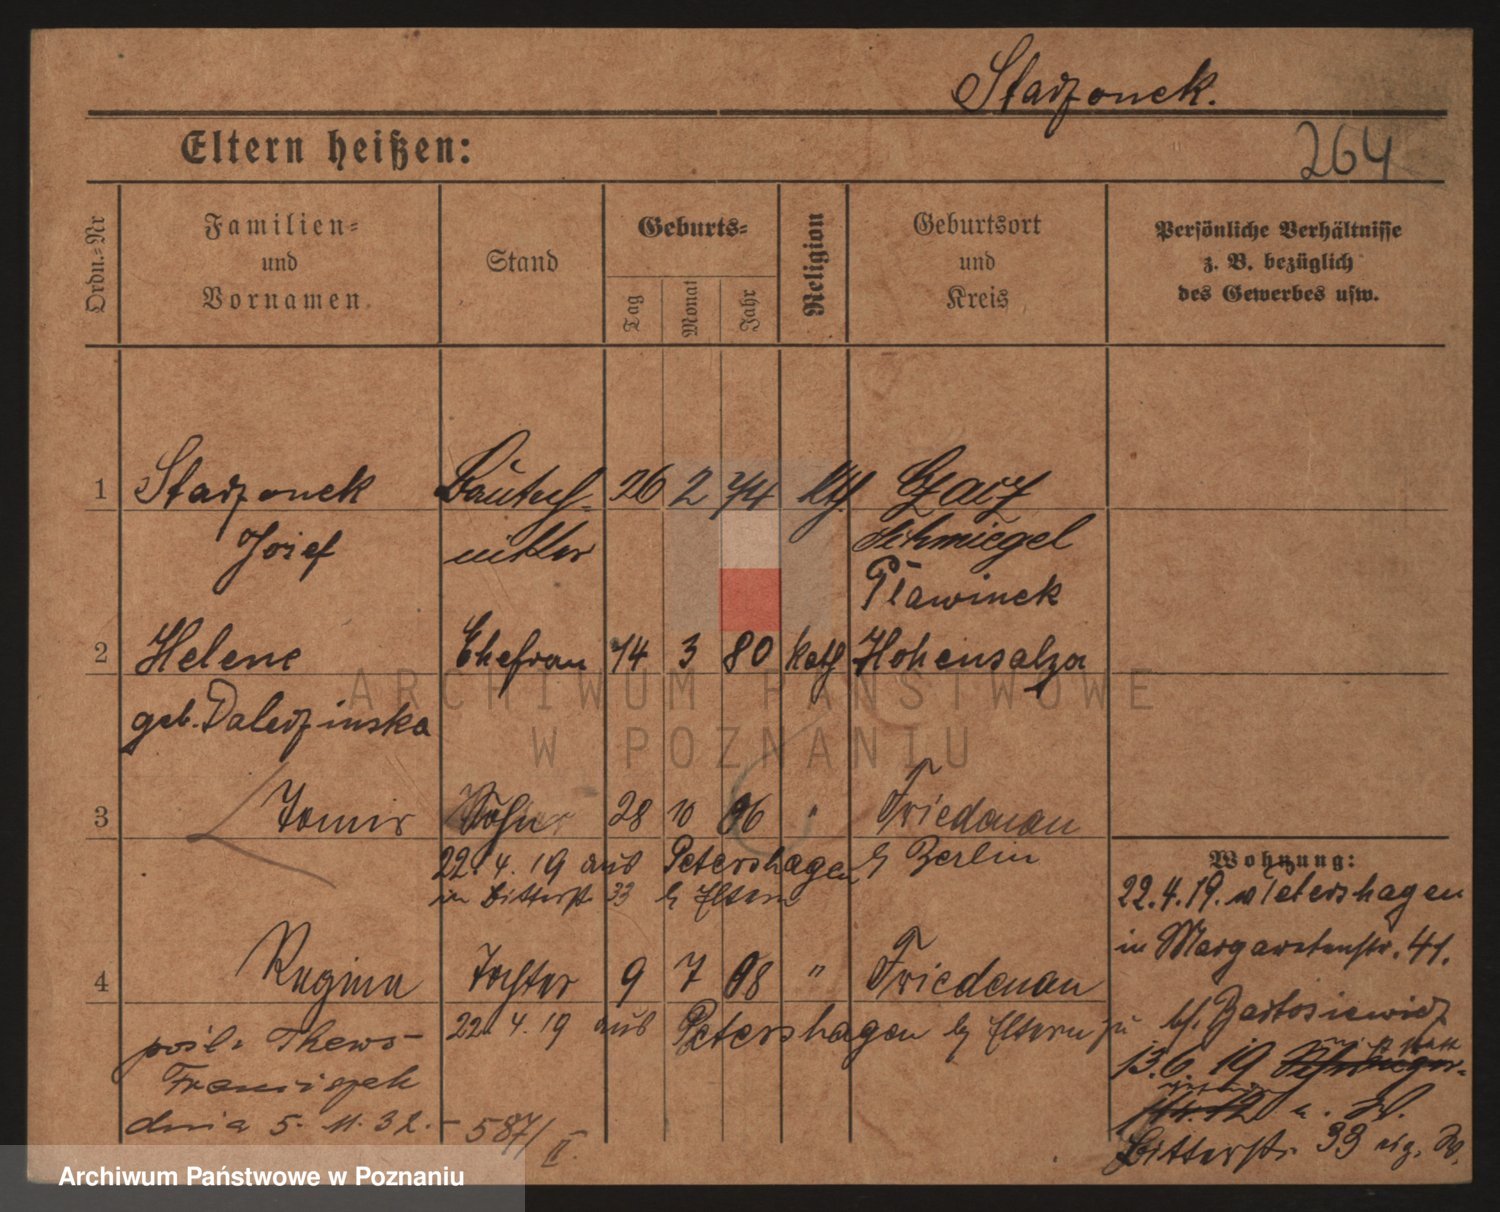 Stadzonek.
Eltern heißen:
264
Ordn.-Nr
Familien-
und
Vornamen
Stand
Geburts-
Tag
Monat
Jahr
Religion
Geburtsort
und
Kreis
Persönliche Verhältnisse
z. B. bezüglich
des Gewerbes usw.
1 Stadzonek 26 2 74 kth.
Josef Schmiegel
Plawinek
2 Helene Ehefrau 14 3 80 kath Hohensalza
geb.
ARCHIWUM PAŃSTWOWE
W POZNANIU
3 Sohn 28 10 06 " Friedenau
22. 4. 19 aus Petershagen b/ Berlin
in Bitterstr. 33 b/ Eltern
Wohnung:
22.4.19. v Petershagen
in Margaretenstr. 41.
4 Regina Tochter 9 7 08 " Friedenau
22. 4. 19 aus Petershagen b/ Eltern zu
b/. Bartosiewicz
Franciszek
13.6.19
dnia 5. 11. 32. - 587/II.
Bitterstr. 33
Archiwum Państwowe w Poznaniu